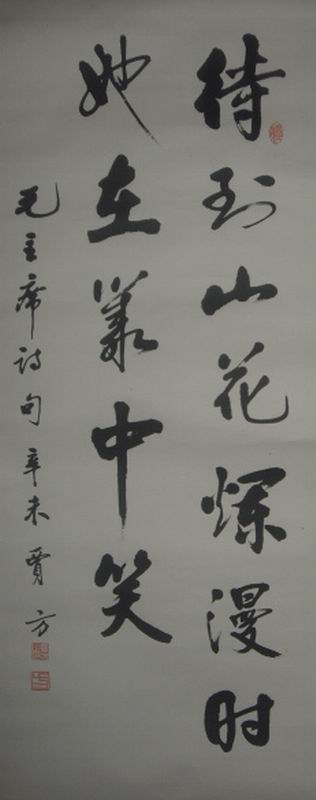 待到山花爛漫时
她在叢中笑
毛主席诗句 辛未 賈方